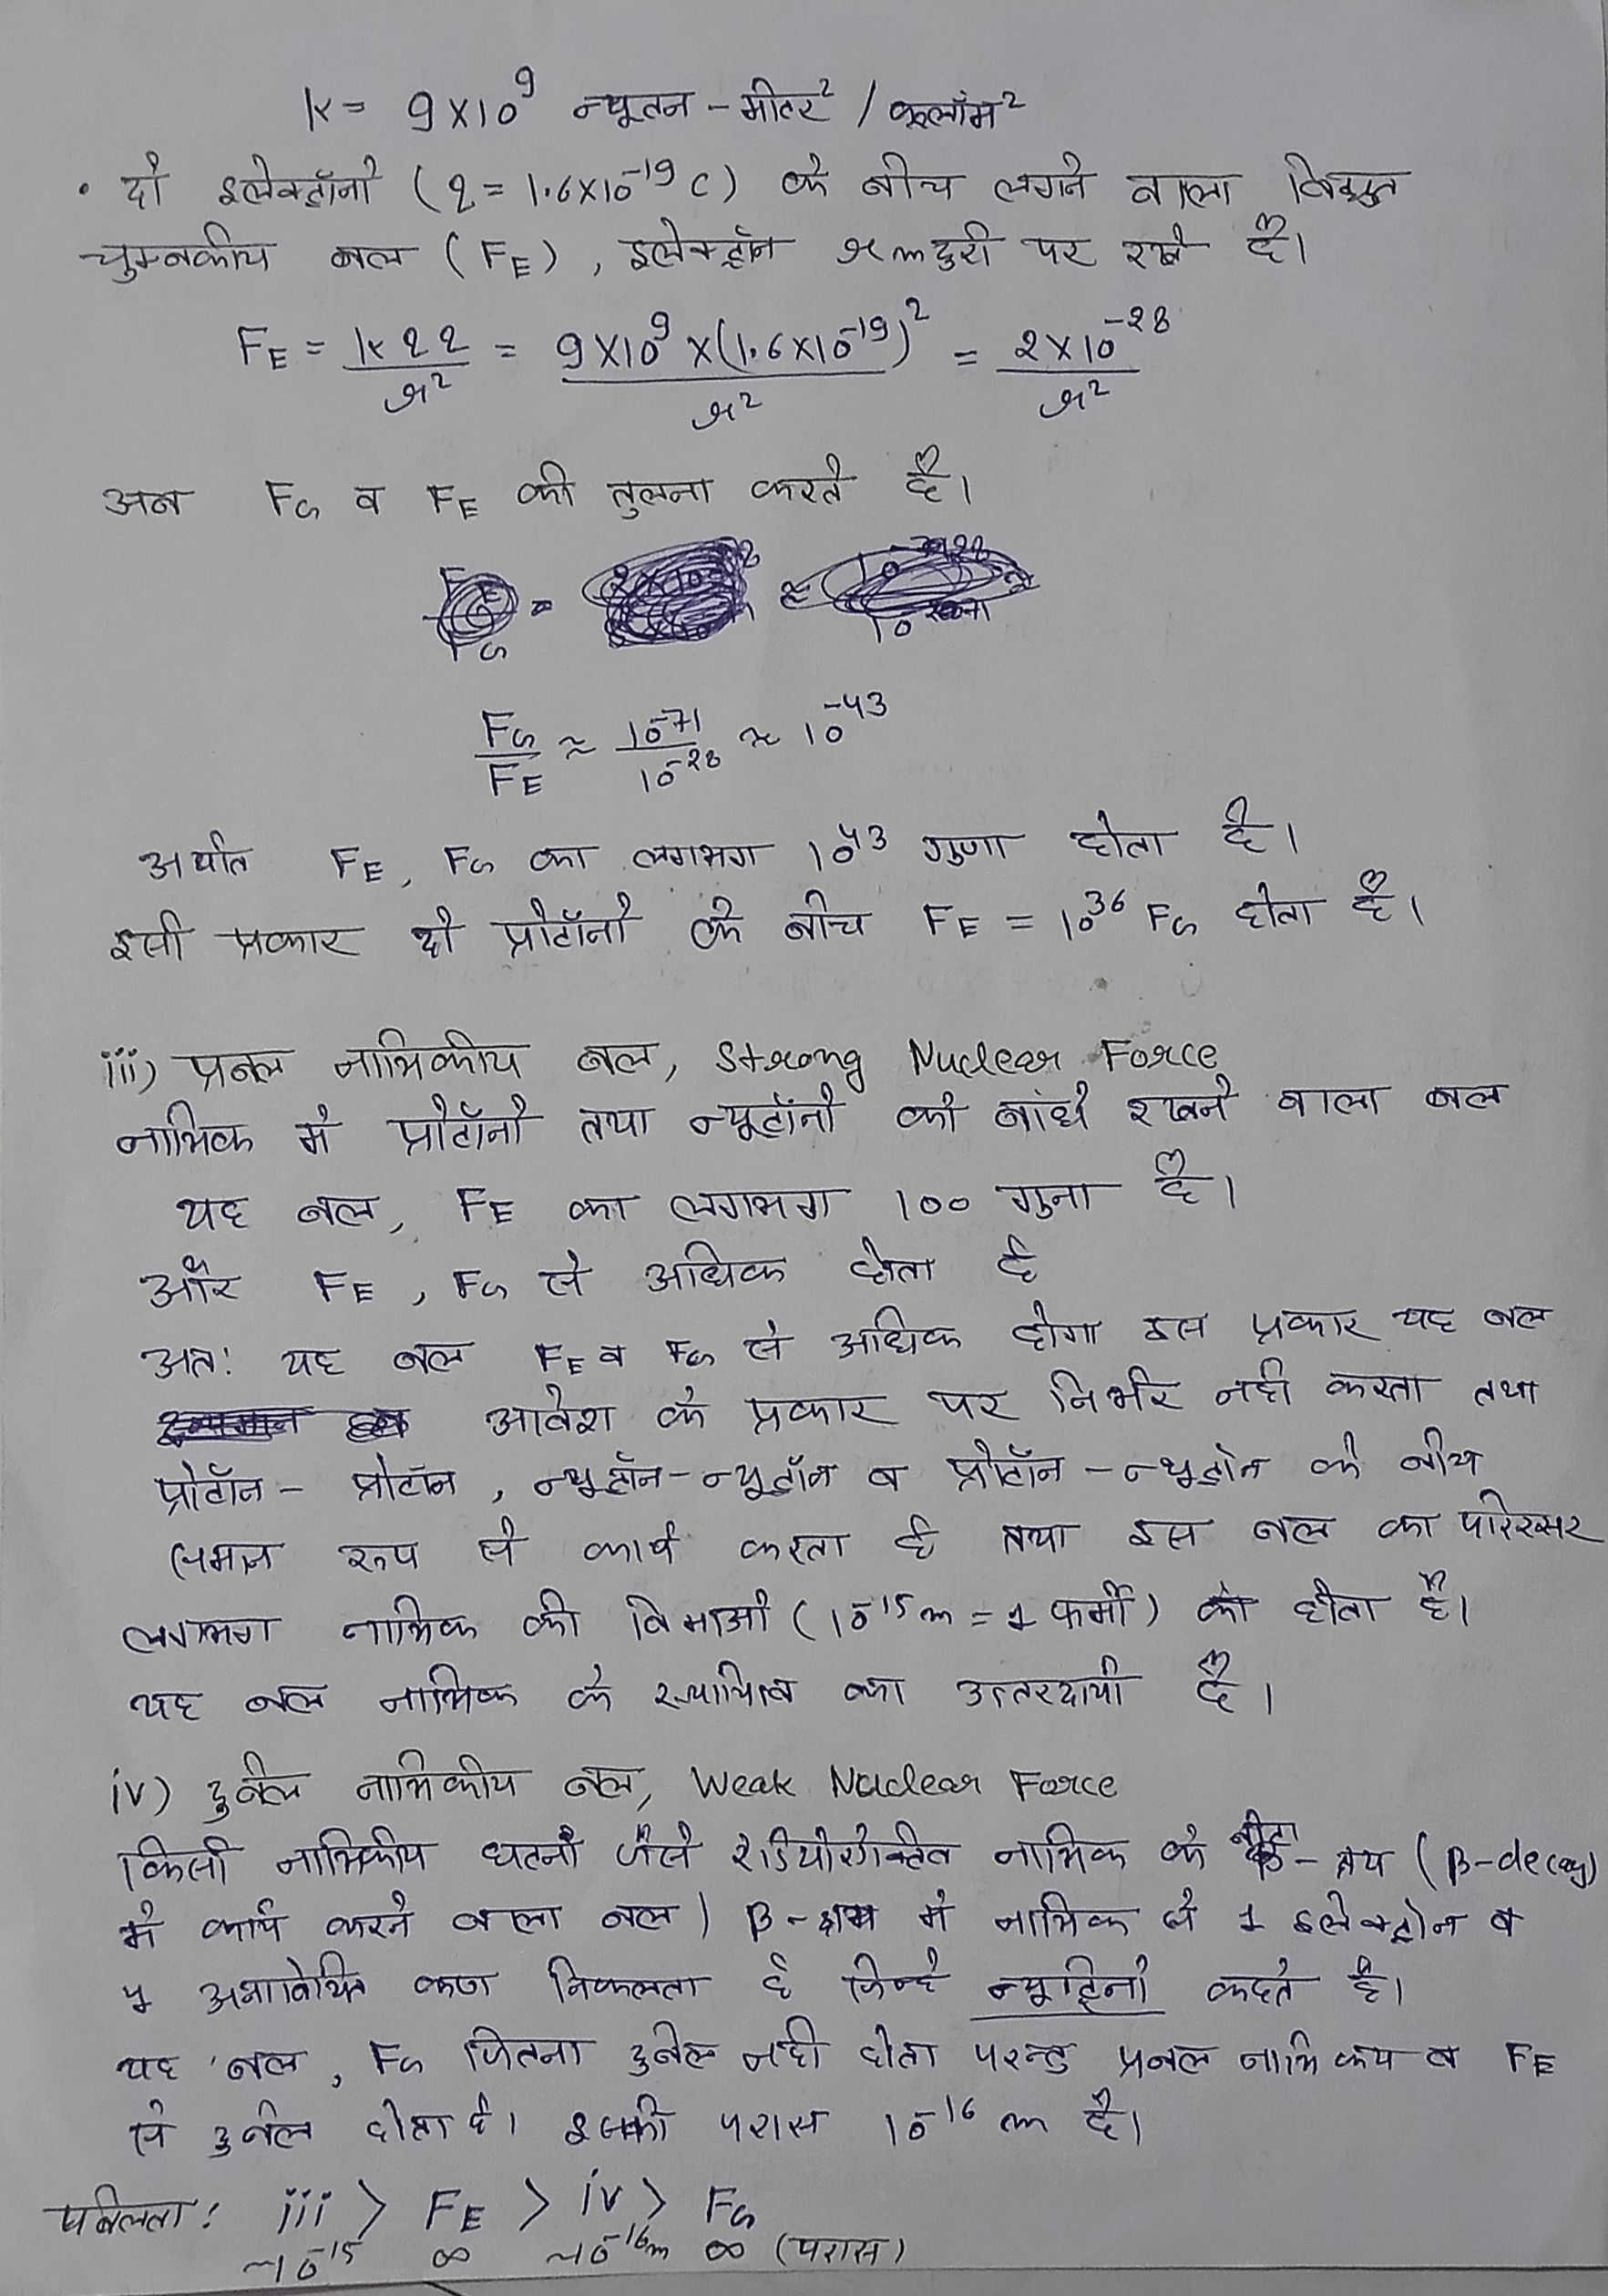 K = 9×10⁹ न्यूतन - मीटर² / कूलॉम²
• दो इलेक्ट्रॉनो (q = 1.6×10⁻¹⁹ C) के बीच लगने वाला विद्युत
चुम्बकीय बल (FE), इलेक्ट्रॉन r m दुरी पर रखे है।
FE = Kqq/r² = 9×10⁹ × (1.6×10⁻¹⁹)²/r² = 2×10⁻²⁸/r²
अब FG व FE की तुलना करते है।
FG/FE ≈ 10⁻⁷¹/10⁻²⁸ ≈ 10⁻⁴³
अर्थात FE, FG का लगभग 10⁴³ गुणा होता है।
इसी प्रकार दो प्रोटॉनो के बीच FE = 10³⁶ FG होता है।
iii) प्रबल नाभिकीय बल, Strong Nuclear Force
नाभिक मे प्रोटॉनो तथा न्यूट्रॉनो को बांधे रखने वाला बल
यह बल, FE का लगभग 100 गुना है।
और FE, FG से अधिक होता है
अत: यह बल FE व FG से अधिक होगा इस प्रकार यह बल
आवेश के प्रकार पर निर्भर नही करता तथा
प्रोटॉन - प्रोटॉन, न्यूट्रॉन - न्यूट्रॉन व प्रोटॉन - न्यूट्रॉन के बीच
समान रूप से कार्य करता है तथा इस बल का परिसर
लगभग नाभिक की विमाओ (10⁻¹⁵m = 1 फर्मी) का होता है।
यह बल नाभिक के स्थायित्व का उत्तरदायी है।
iv) दुर्बल नाभिकीय बल, Weak Nuclear Force
किसी नाभिकीय घटनो जैसे रेडियोऐक्टिव नाभिक के बीटा - क्षय (β-decay)
मे कार्य करने वाला बल) β-क्षय मे नाभिक से 1 इलेक्ट्रोन व
1 अनावेशित कण निकलता है जिन्हे न्यूट्रिनो कहते है।
यह बल, FG जितना दुर्बल नही होता परन्तु प्रबल नाभिकय व FE
से दुर्बल होता है। इसकी परास 10⁻¹⁶ m है।
प्रबलता: iii > FE > iv > FG
~10⁻¹⁵ ∞ ~10⁻¹⁶m ∞ (परास)